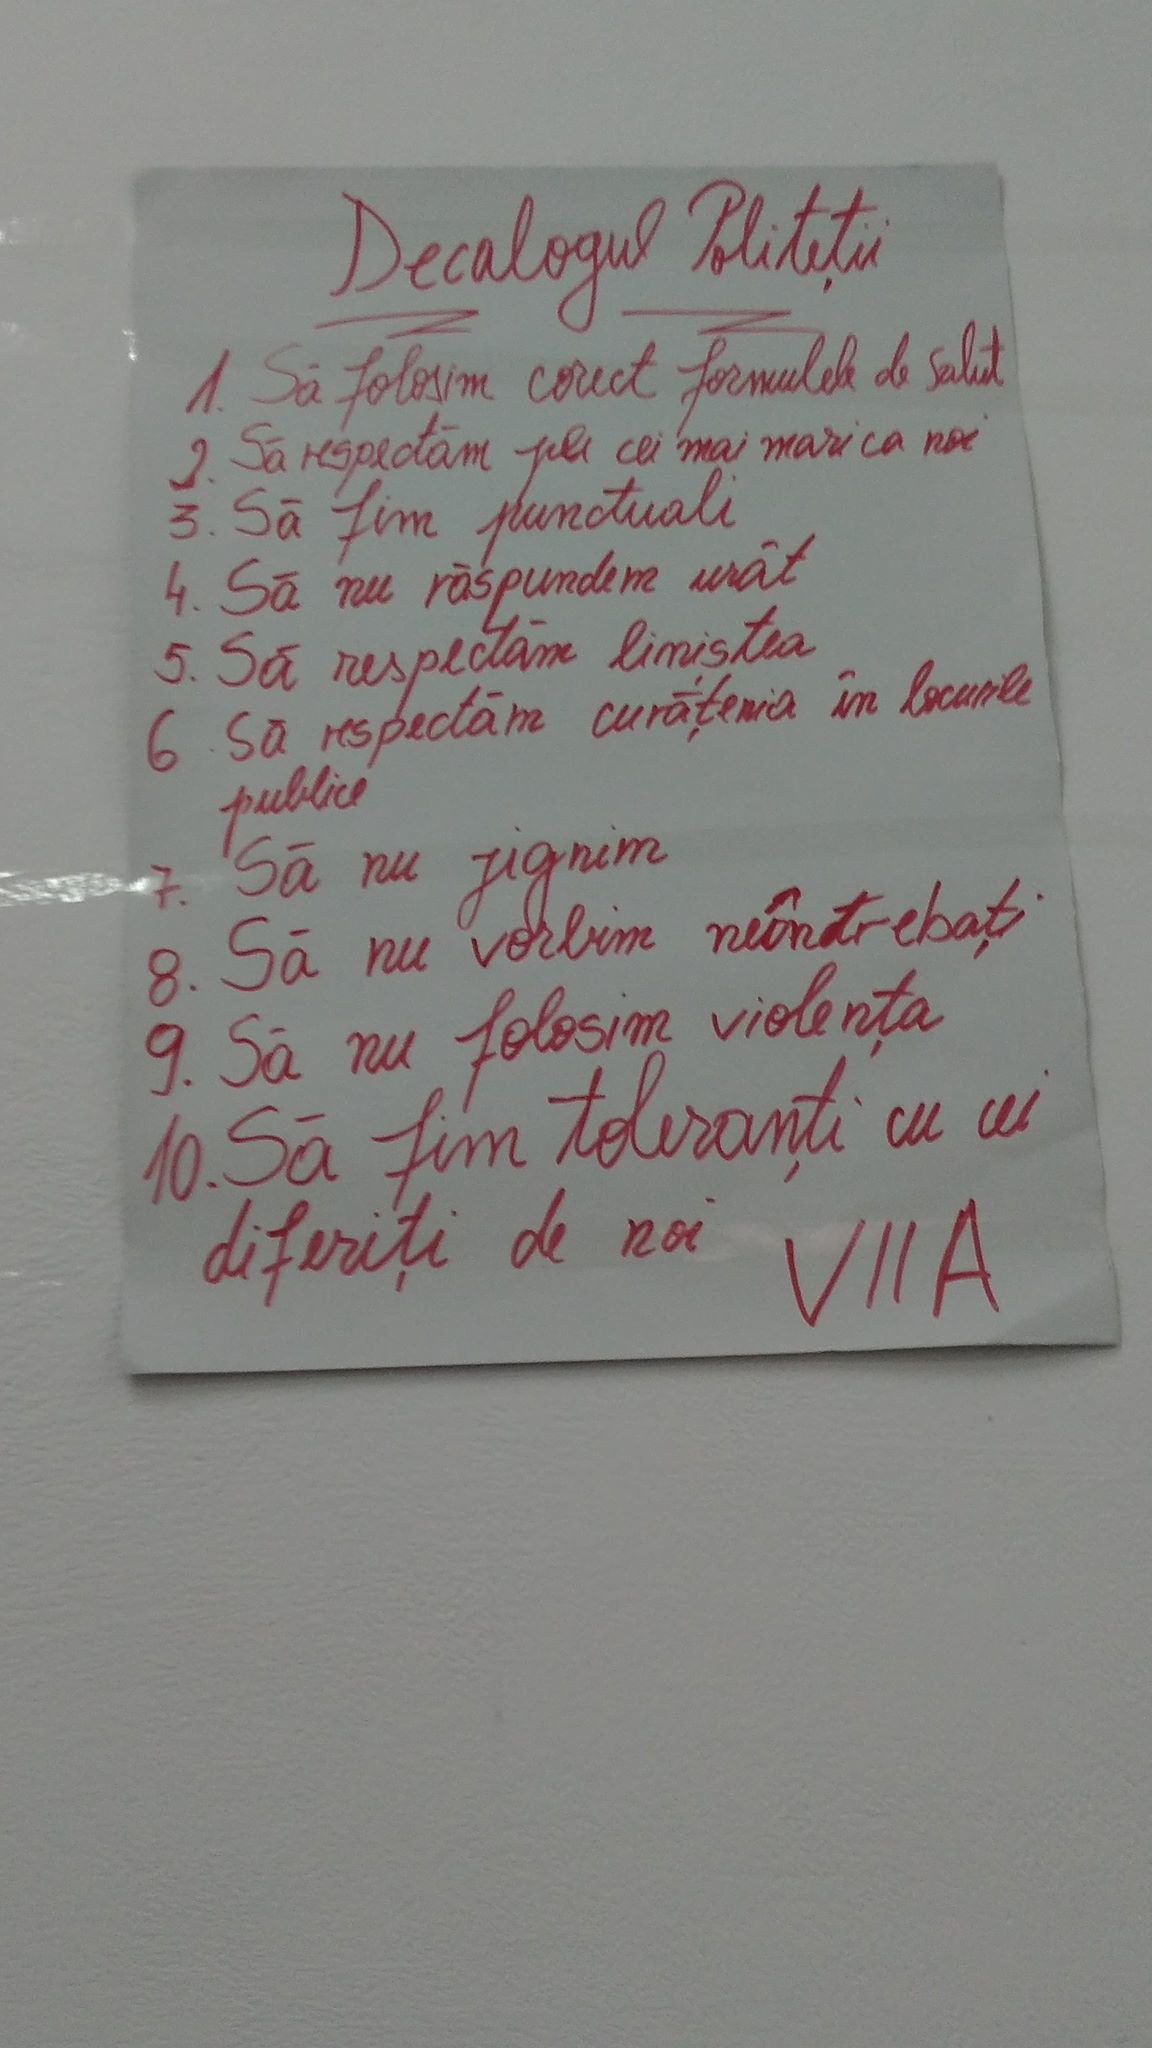 Decalogul Politeții
1. Să folosim corect formulele de salut
2. Să respectăm pe cei mai mari ca noi
3. Să fim punctuali
4. Să nu răspundem urât
5. Să respectăm liniștea
6 Să respectăm curățenia în locurile
publice
7. Să nu jignim
8. Să nu vorbim neîntrebați
9. Să nu folosim violența
10. Să fim toleranți cu cei
diferiți de noi VII A